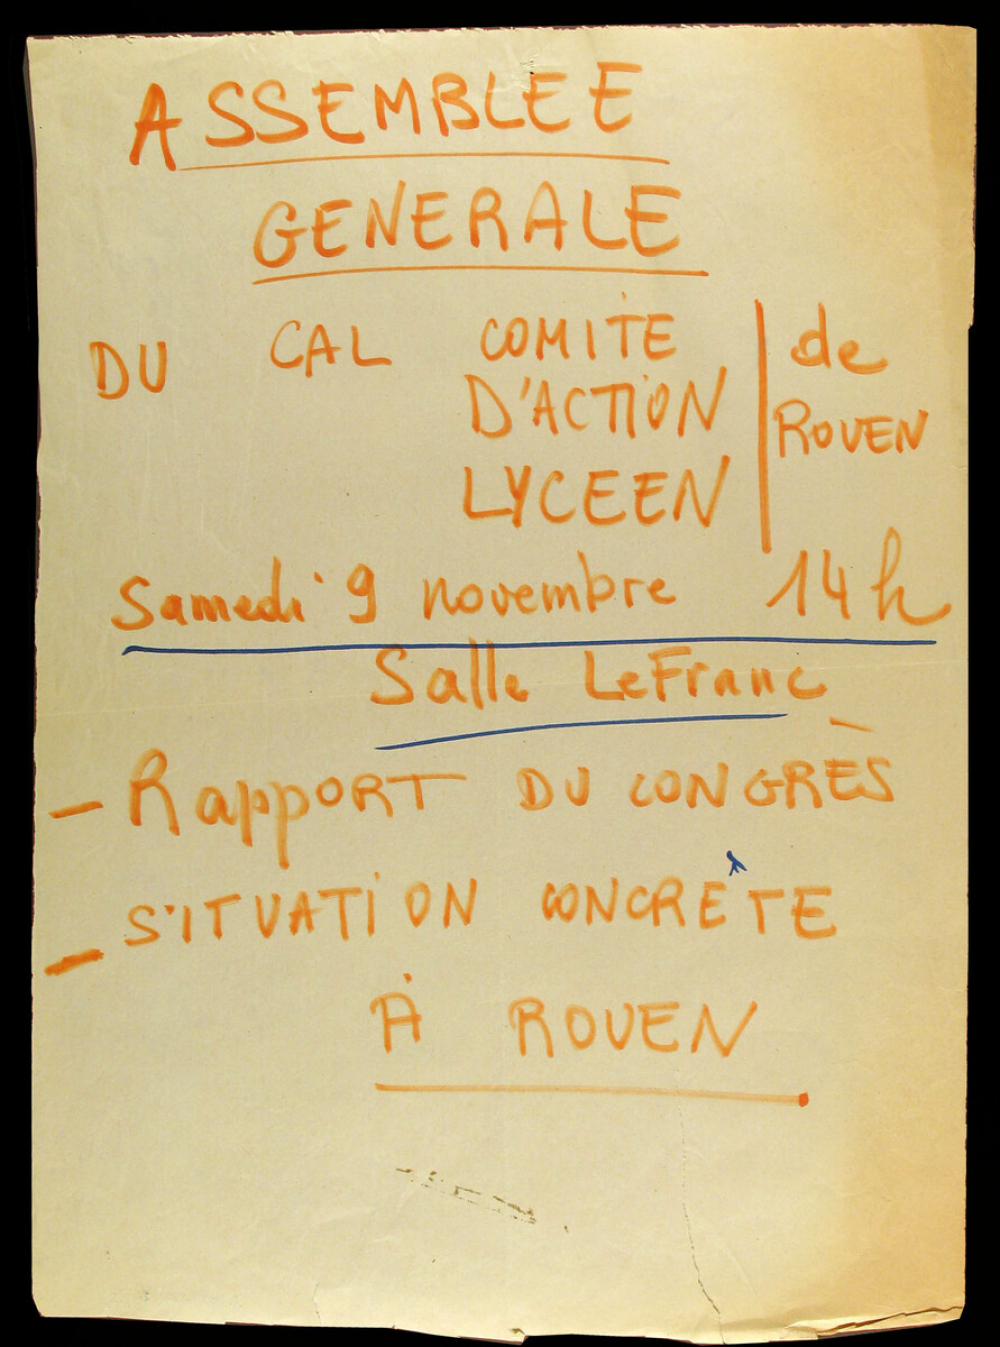 ASSEMBLEE
GENERALE
DU CAL COMITE
D'ACTION
LYCEEN
de
ROUEN
Samedi 9 novembre 14h
Salle LeFranc
- Rapport DU CONGRÈS
- SITUATION CONCRÈTE
À ROUEN